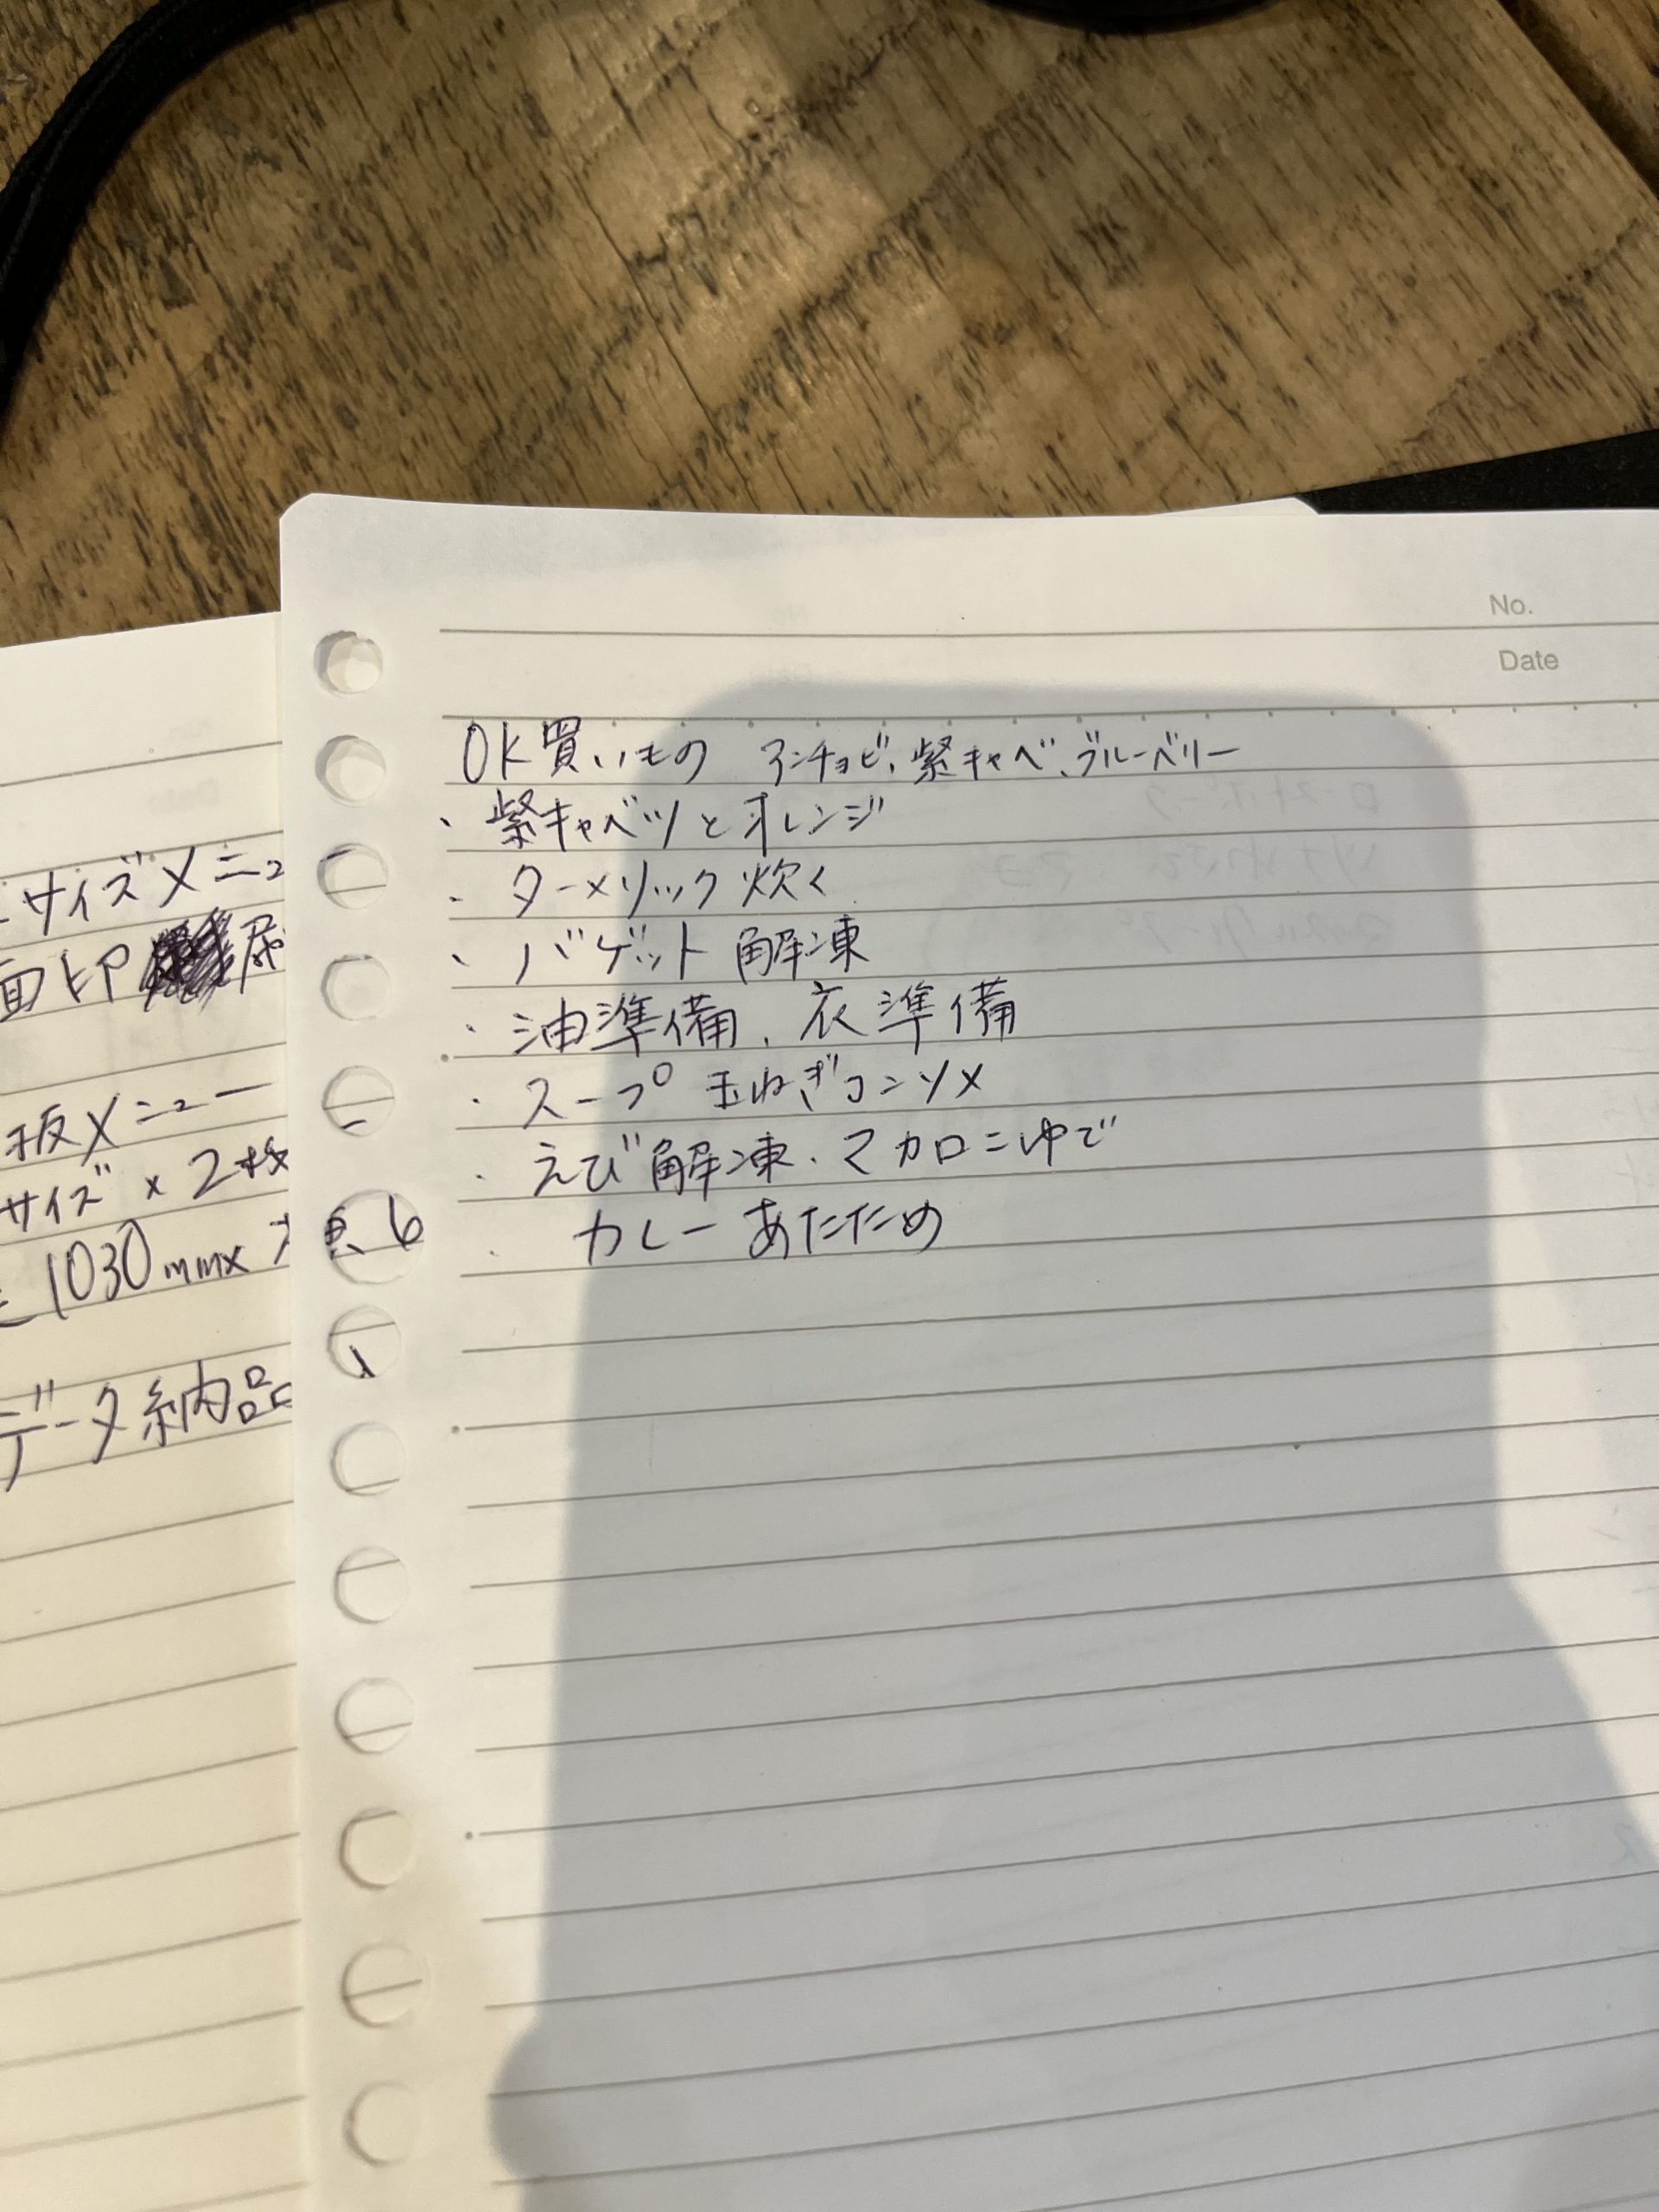 No.
Date
OK買いもの アンチョビ、紫キャベ、ブルーベリー
・紫キャベツとオレンジ
・ターメリック炊く
・バゲット解凍
・油準備、衣準備
・スープ 玉ねぎコンソメ
・えび解凍、マカロニゆで
・カレーあたため
サイズメニュ
面印刷
板メニュー
サイズ×2枚
1030mm×
データ納品